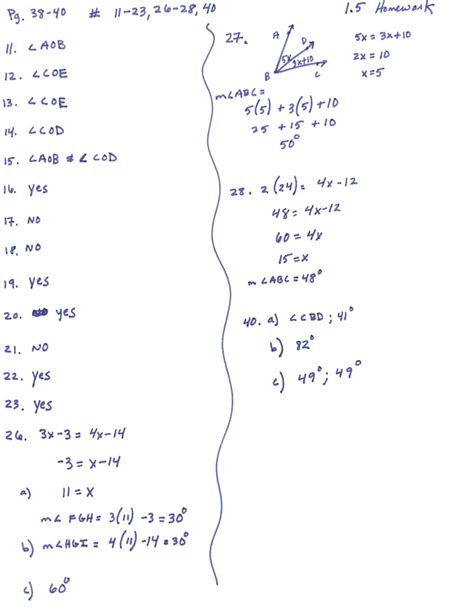 Pg. 38-40 # 11-23, 26-28, 40
1.5 Homework
11. ∠AOB
12. ∠COE
13. ∠COE
14. ∠COD
15. ∠AOB ≠ ∠COD
16. yes
17. NO
18. NO
19. Yes
20. yes
21. NO
22. Yes
23. Yes
26. 3x-3 = 4x-14
-3 = x-14
a) 11 = x
m∠FGH = 3(11) -3 = 30°
b) m∠HGI = 4(11) -14 = 30°
c) 60°
27.
A
D
5x
3x+10
B
C
5x = 3x+10
2x = 10
x = 5
m∠ABC =
5(5) + 3(5) + 10
25 + 15 + 10
50°
28. 2(24) = 4x-12
48 = 4x-12
60 = 4x
15 = x
m∠ABC = 48°
40. a) ∠CBD ; 41°
b) 82°
c) 49° ; 49°